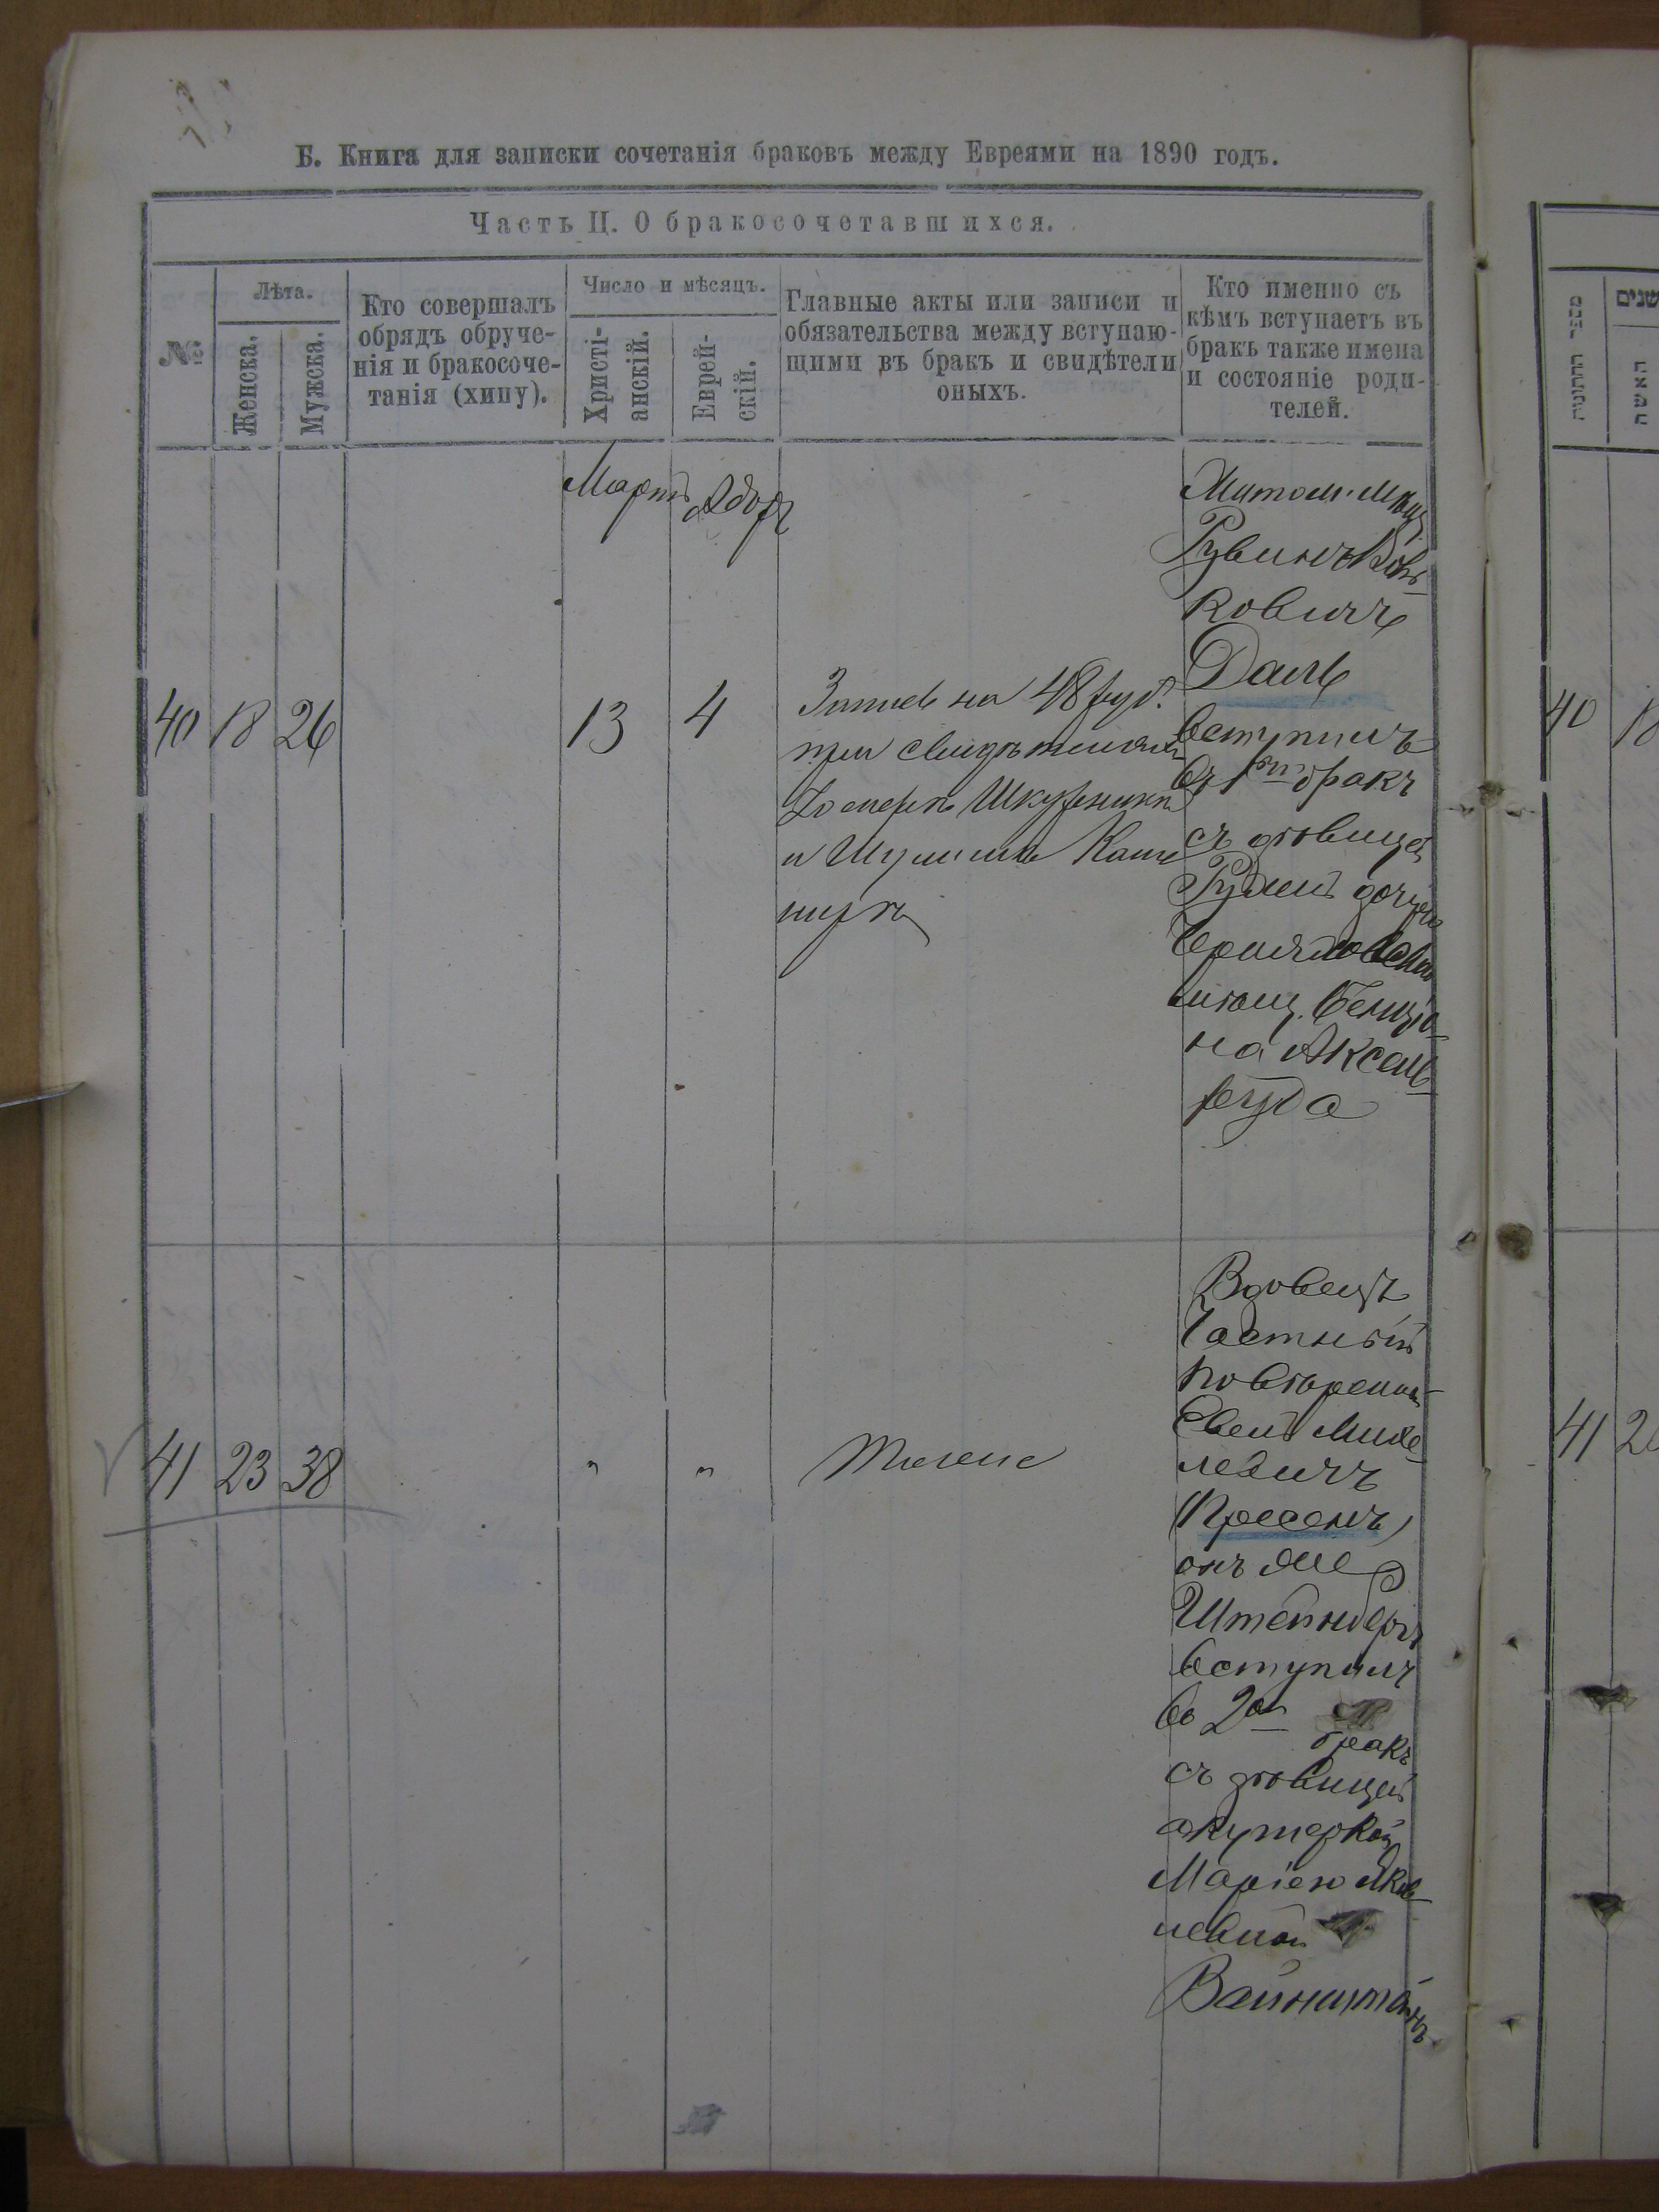 Б. Книга для записки сочетанія браковъ между Евреями на 1890 годъ.
Часть II. О бракосочетавшихся.
№
Лѣта.
Женска.
Мужска.
Кто совершалъ
обрядъ обруче-
нія и бракосоче-
танія (хипу).
Число и мѣсяцъ.
Христі-
анскій.
Еврей-
скій.
Главные акты или записи и
обязательства между вступаю-
щими въ бракъ и свидѣтели
оныхъ.
Кто именно съ
кѣмъ вступаетъ въ
бракъ также имена
и состояніе роди-
телей.
Мартъ Адоръ
40 18 26 13 4
Запись на 48 руб.
при свидѣтеляхъ
Шкурникъ
и Шулимъ
Житом. мѣщ.
Рувинъ
ковичъ
Даль
вступилъ
въ 1ый бракъ
съ дѣвицей
дочерью
мѣщ. Бенціо-
на Аксель-
руда
41 23 38 " "
Тоже
Вдовецъ
Частный
повѣренный
Михе-
левичъ
(Прессенъ)
онъ же
Штейнбергъ
вступилъ
во 2ой
бракъ
съ дѣвицей
акушеркой
Маріею Яков-
левной
Вайнштейнъ
מספר החתונה
שנים
האשה
40 18
41